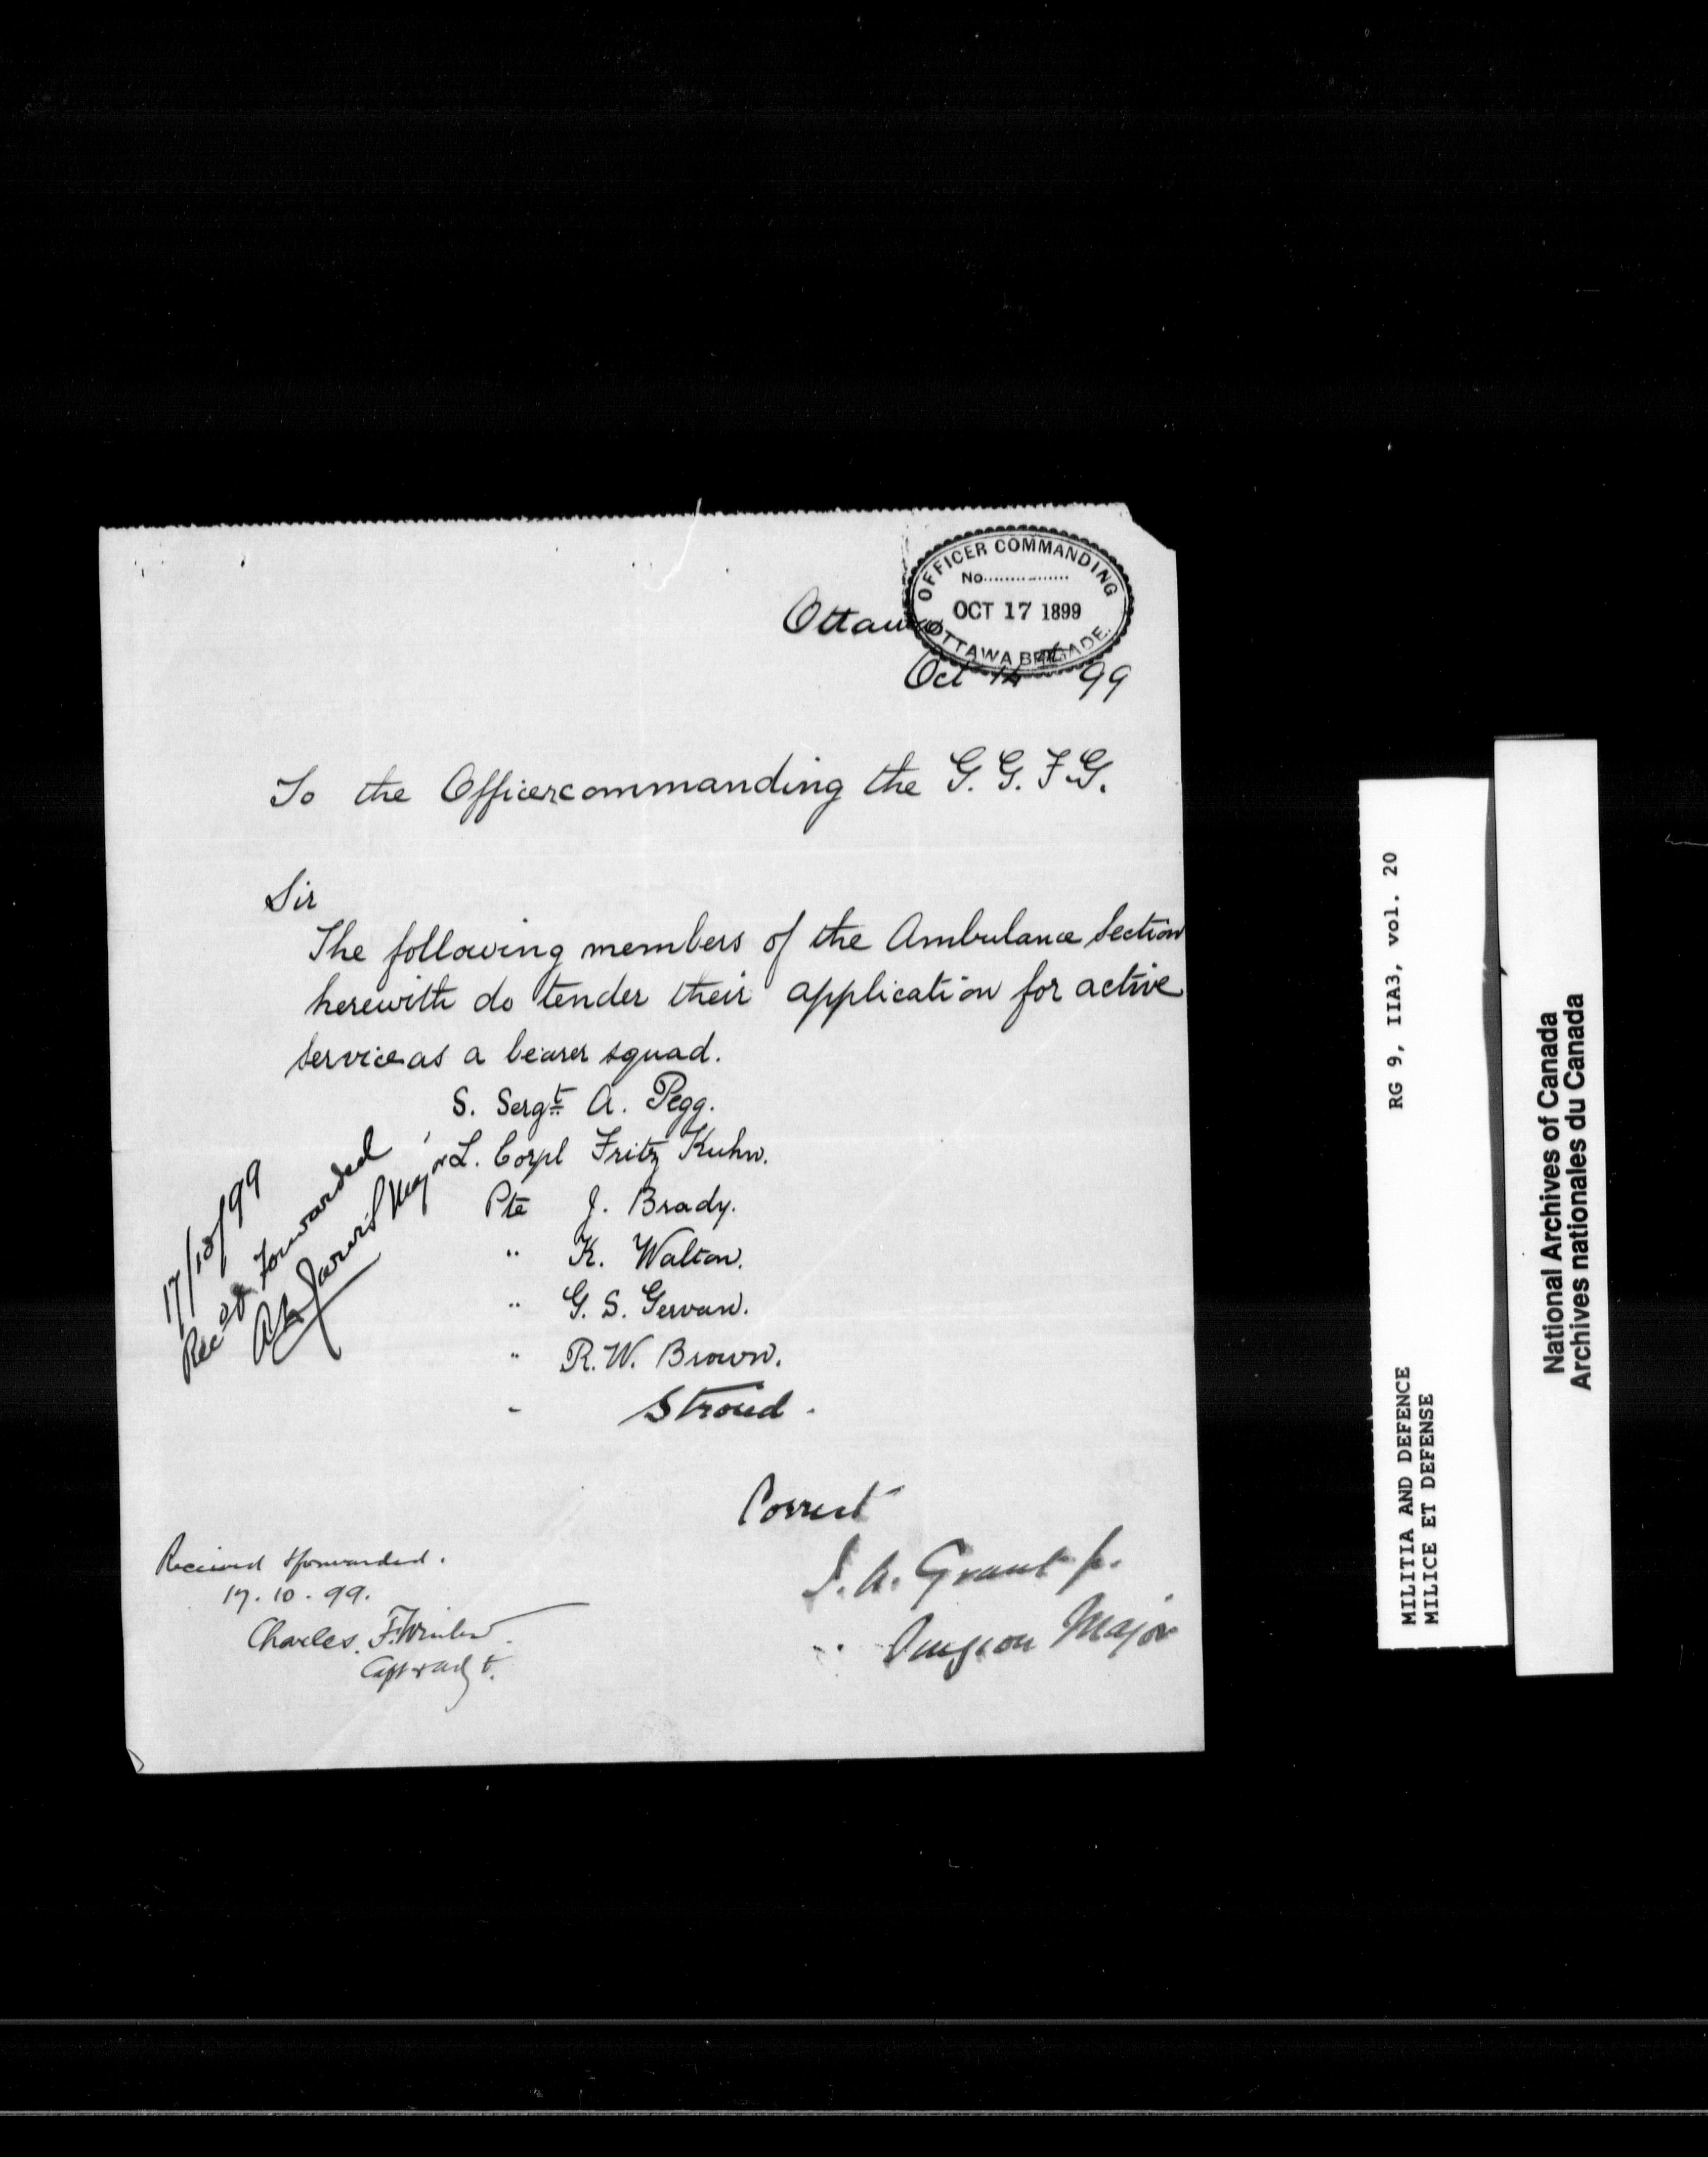 OFFICER COMMANDING
No
OCT 17 1899
OTTAWA BRIGADE.
Ottawa
Oct 14 99
To the Officer commanding the G. G. F. G.
Sir
The following members of the Ambulance Section
herewith do tender their application for active
service as a bearer squad.
S. Sergt A. Pegg.
L. Corpl Fritz Kuhn.
Pte J. Brady.
" K. Walton.
" G. S. Gervan.
" R. W. Brown.
" Stroud.
17/10/99
Forwarded
Jarvis Major
Correct
Grant Jr.
Surgeon Major
Received & forwarded.
17. 10. 99.
Charles F. Winter
Capt & Adjt.
RG 9, IIA3, vol. 20
MILITIA AND DEFENCE
MILICE ET DEFENSE
National Archives of Canada
Archives nationales du Canada